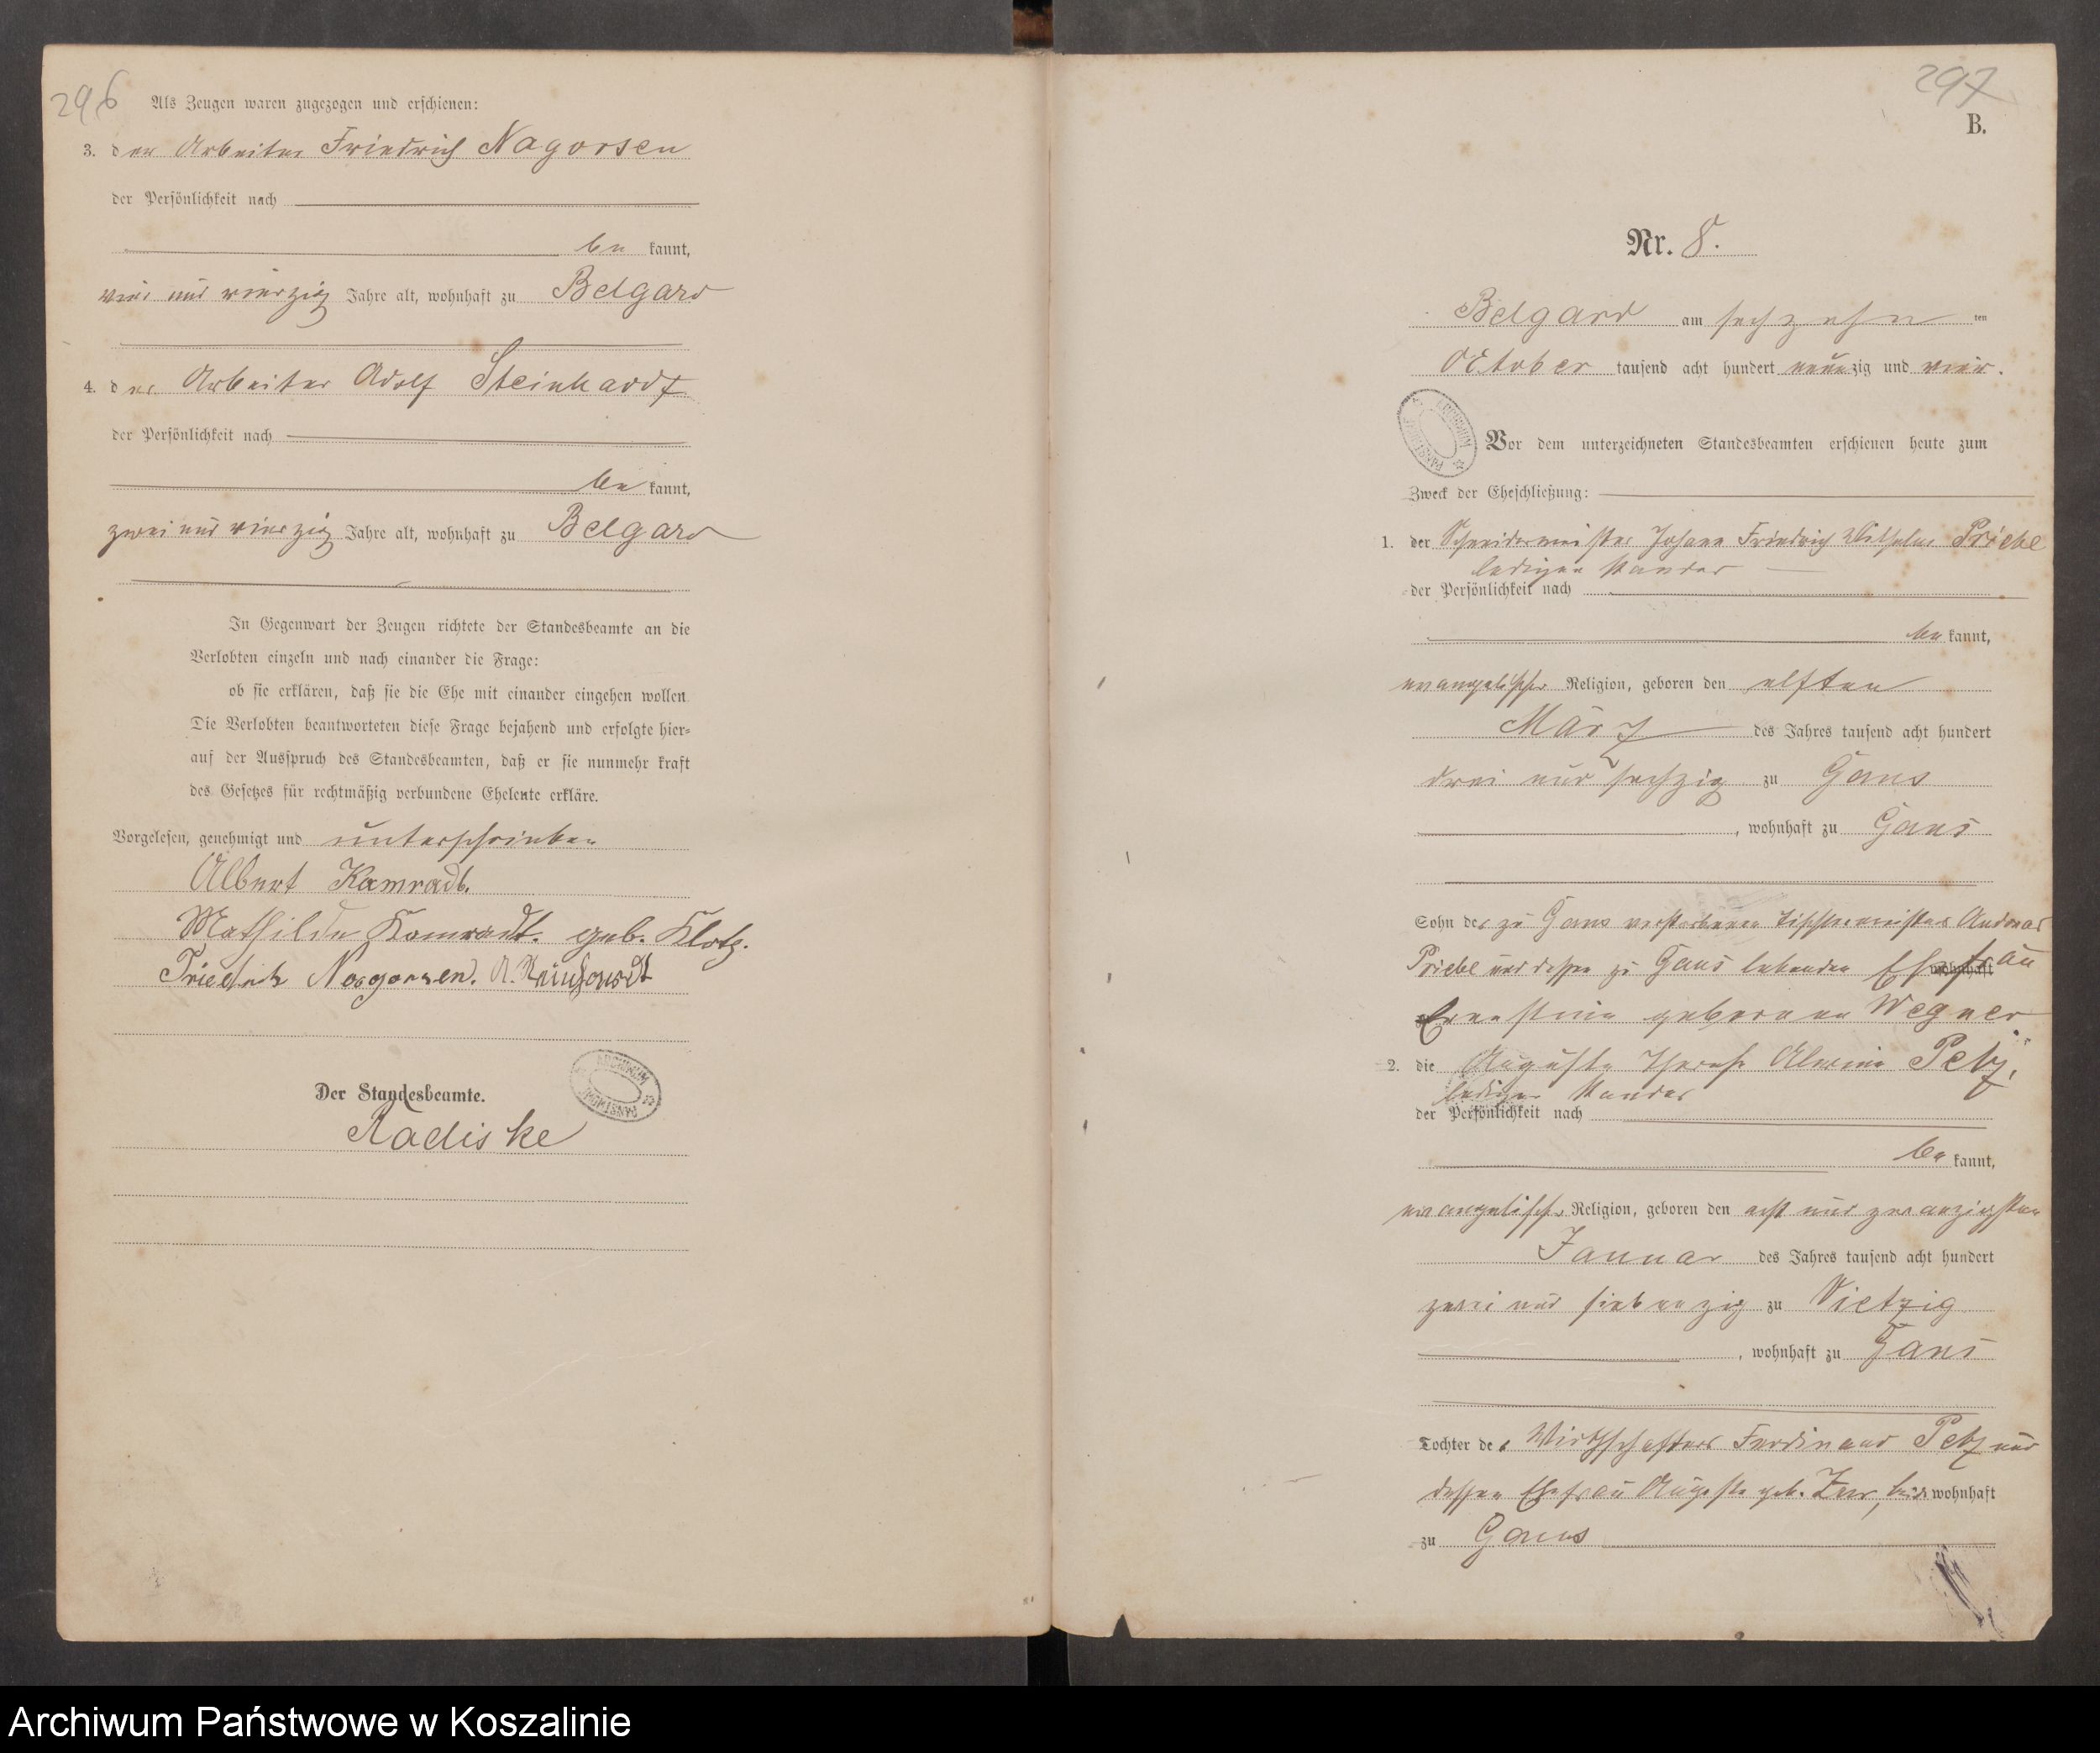 296
Als Zeugen waren zugezogen und erschienen:
3. der Arbeiter Friedrich Nagorsen
der Persönlichkeit nach
be kannt,
vier und vierzig Jahre alt, wohnhaft zu Belgard
4. der Arbeiter Adolf Steinhardt
der Persönlichkeit nach
be kannt,
zwei und vierzig Jahre alt, wohnhaft zu Belgard
In Gegenwart der Zeugen richtete der Standesbeamte an die
Verlobten einzeln und nach einander die Frage:
ob sie erklären, daß sie die Ehe mit einander eingehen wollen.
Die Verlobten beantworteten diese Frage bejahend und erfolgte hier-
auf der Ausspruch des Standesbeamten, daß er sie nunmehr kraft
des Gesetzes für rechtmäßig verbundene Eheleute erkläre.
Vorgelesen, genehmigt und unterschrieben
Albert Kamradt.
Mathilde Kamradt. geb. Klotz.
Friedrich Nagorsen. A. Steinhardt
ARCHIWUM PAŃSTWOWE
Der Standesbeamte.
Radiske
297
B.
Nr. 8.
Belgard am sechzehn ten
October tausend acht hundert neunzig und vier.
ARCHIWUM PAŃSTWOWE
Vor dem unterzeichneten Standesbeamten erschienen heute zum
Zweck der Eheschließung:
1. der Schneidermeister Johann Friedrich Wilhelm Priebe
ledigen Standes
der Persönlichkeit nach
be kannt,
evangelischer Religion, geboren den elften
März des Jahres tausend acht hundert
drei und sechzig zu Gans
, wohnhaft zu Gans
Sohn des zu Gans verstorbenen Tischlermeisters Andreas
Priebe und dessen zu Gans lebenden Ehefrau wohnhaft
Ernestine geborenen Wegner
2. die Auguste Therese Alwine Petz,
ledigen Standes
der Persönlichkeit nach
be kannt,
evangelischer Religion, geboren den acht und zwanzigsten
Januar des Jahres tausend acht hundert
zwei und siebenzig zu Vietzig
, wohnhaft zu Gans
Tochter des Wirthschafters Ferdinand Petz und
dessen Ehefrau Auguste geb. , beide wohnhaft
zu Gans
Archiwum Państwowe w Koszalinie